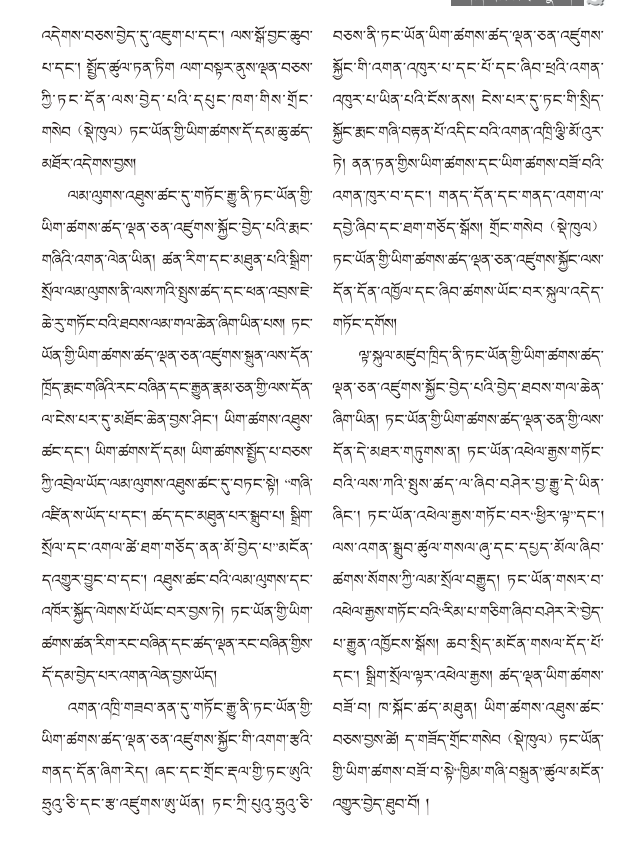 འདེགས་བཅས་བྱེད་དུ་འཇུག་པ་དང་། ལས་སྒོ་བྱང་ཆུབ་
པ་དང་། སྤྱོད་ཚུལ་ཏན་ཏིག ལག་བསྟར་ནུས་ལྡན་བཅས་
ཀྱི་ཏང་དོན་ལས་བྱེད་པའི་དཔུང་ཁག་གིས་གྲོང་
གསེབ（སྡེ་ཁུལ）ཏང་ཡོན་གྱི་ཡིག་ཚགས་དོ་དམ་ཆུ་ཚད་
མཐོར་འདེགས་བྱས།
ལམ་ལུགས་འཐུས་ཚང་དུ་གཏོང་རྒྱུ་ནི་ཏང་ཡོན་གྱི་
ཡིག་ཚགས་ཚད་ལྡན་ཅན་འཛུགས་སྐྱོང་བྱེད་པའི་རྨང་
གཞིའི་འགན་ལེན་ཡིན། ཚན་རིག་དང་མཐུན་པའི་སྒྲིག་
སྲོལ་ལམ་ལུགས་ནི་ལས་ཀའི་སྤུས་ཚད་དང་ཕན་འབྲས་ཇེ་
ཆེ་རུ་གཏོང་བའི་ཐབས་ལམ་གལ་ཆེན་ཞིག་ཡིན་པས། ཏང་
ཡོན་གྱི་ཡིག་ཚགས་ཚད་ལྡན་ཅན་འཛུགས་སྐྲུན་ལས་དོན་
ཁྲོད་རྨང་གཞིའི་རང་བཞིན་དང་རྒྱུན་རྣམ་ཅན་གྱི་ལས་དོན་
ལ་ངེས་པར་དུ་མཐོང་ཆེན་བྱས་ཤིང་། ཡིག་ཚགས་འཐུས་
ཚང་དང་། ཡིག་ཚགས་དོ་དམ། ཡིག་ཚགས་སྤྱོད་པ་བཅས་
ཀྱི་འབྲེལ་ཡོད་ལམ་ལུགས་འཐུས་ཚང་དུ་བཏང་སྟེ། “གཞི་
འཛིན་ས་ཡོད་པ་དང་། ཚད་དང་མཐུན་པར་སྒྲུབ་པ། སྒྲིག་
སྲོལ་དང་འགལ་ཚེ་ཐག་གཅོད་ནན་མོ་བྱེད་པ”མངོན་
དུ་འགྱུར་བྱུང་བ་དང་། འཐུས་ཚང་བའི་ལམ་ལུགས་དང་
འཁོར་སྐྱོད་ལེགས་པོ་ཡོང་བར་བྱས་ཏེ། ཏང་ཡོན་གྱི་ཡིག་
ཚགས་ཚན་རིག་རང་བཞིན་དང་ཚད་ལྡན་རང་བཞིན་གྱིས་
དོ་དམ་བྱེད་པར་འགན་ལེན་བྱས་ཡོད།
འགན་འཁྲི་གཟབ་ནན་དུ་གཏོང་རྒྱུ་ནི་ཏང་ཡོན་གྱི་
ཡིག་ཚགས་ཚད་ལྡན་ཅན་འཛུགས་སྐྱོང་གི་འགག་རྩའི་
གནད་དོན་ཞིག་རེད། ཞང་དང་གྲོང་རྡལ་གྱི་ཏང་ཨུའི་
ཧྲུའུ་ཅི་དང་རྩ་འཛུགས་ཨུ་ཡོན། ཏང་ཀྲི་པུའུ་ཧྲུའུ་ཅི་
བཅས་ནི་ཏང་ཡོན་ཡིག་ཚགས་ཚད་ལྡན་ཅན་འཛུགས་
སྐྱོང་གི་འགན་འཁུར་པ་དང་པོ་དང་ཞིབ་ཕྲའི་འགན་
འཁུར་པ་ཡིན་པའི་ངོས་ནས། ངེས་པར་དུ་ཏང་གི་སྲིད་
སྐྱོང་རྨང་གཞི་བརྟན་པོ་འདིང་བའི་འགན་འཁྲི་ལྕི་མོ་འུར་
ཏེ། ནན་ཏན་གྱིས་ཡིག་ཚགས་དང་ཡིག་ཚགས་བཟོ་བའི་
འགན་ཁུར་བ་དང་། གནད་དོན་དང་གནད་འགག་ལ་
དབྱེ་ཞིབ་དང་ཐག་གཅོད་སྒོས། གྲོང་གསེབ（སྡེ་ཁུལ）
ཏང་ཡོན་གྱི་ཡིག་ཚགས་ཚད་ལྡན་ཅན་འཛུགས་སྐྱོང་ལས་
དོན་དོན་འཁྱོལ་དང་ཞིབ་ཚགས་ཡོང་བར་སྐུལ་འདེད་
གཏོང་དགོས།
ལྟ་སྐུལ་མཛུབ་ཁྲིད་ནི་ཏང་ཡོན་གྱི་ཡིག་ཚགས་ཚད་
ལྡན་ཅན་འཛུགས་སྐྱོང་བྱེད་པའི་བྱེད་ཐབས་གལ་ཆེན་
ཞིག་ཡིན། ཏང་ཡོན་གྱི་ཡིག་ཚགས་ཚད་ལྡན་ཅན་གྱི་ལས་
དོན་དེ་མཐར་གཏུགས་ན། ཏང་ཡོན་འཕེལ་རྒྱས་གཏོང་
བའི་ལས་ཀའི་སྤུས་ཚད་ལ་ཞིབ་བཤེར་བྱ་རྒྱུ་དེ་ཡིན་
ཞིང་། ཏང་ཡོན་འཕེལ་རྒྱས་གཏོང་བར“ཕྱིར་ལྟ”དང་།
ལས་འགན་སྒྲུབ་ཚུལ་གསལ་ཞུ་དང་དཔྱད་མོལ་ཞིབ་
ཚགས་སོགས་ཀྱི་ལམ་སྲོལ་བརྒྱུད། ཏང་ཡོན་གསར་བ་
འཕེལ་རྒྱས་གཏོང་བའི་རིམ་པ་གཅིག་ཞིབ་བཤེར་རེ་བྱེད་
པ་རྒྱུན་འཁྱོངས་སྒོས། ཆབ་སྲིད་མངོན་གསལ་དོད་པོ་
དང་། སྒྲིག་སྲོལ་ལྟར་འཕེལ་རྒྱས། ཚད་ལྡན་ཡིག་ཚགས་
བཟོ་བ། ཁ་སྐོང་ཚད་མཐུན། ཡིག་ཚགས་འཐུས་ཚང་
བཅས་བྱས་ཚེ། ད་གཟོད་གྲོང་གསེབ（སྡེ་ཁུལ）ཏང་ཡོན་
གྱི་ཡིག་ཚགས་བཟོ་བ་སྟེ“ཁྱིམ་གཞི་བསྐྲུན”ཚུལ་མངོན་
འགྱུར་བྱེད་ཐུབ་བོ། །